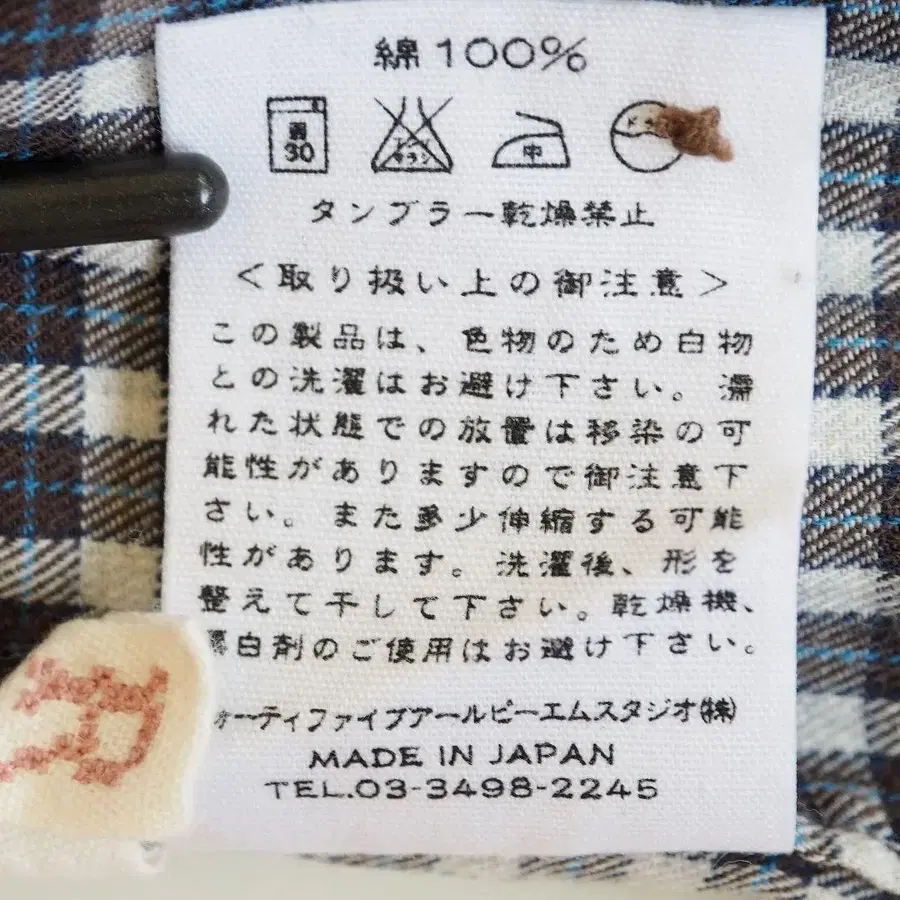 綿100%
弱
30
エンソ
サラシ
中
ドライ
タンブラー乾燥禁止
<取り扱い上の御注意>
この製品は、色物のため白物
との洗濯はお避け下さい。濡
れた状態での放置は移染の可
能性がありますので御注意下
さい。また多少伸縮する可能
性があります。洗濯後、形を
整えて干して下さい。乾燥機、
漂白剤のご使用はお避け下さい。
ォーティファイブアールピーエムスタジオ㈱
MADE IN JAPAN
TEL.03-3498-2245